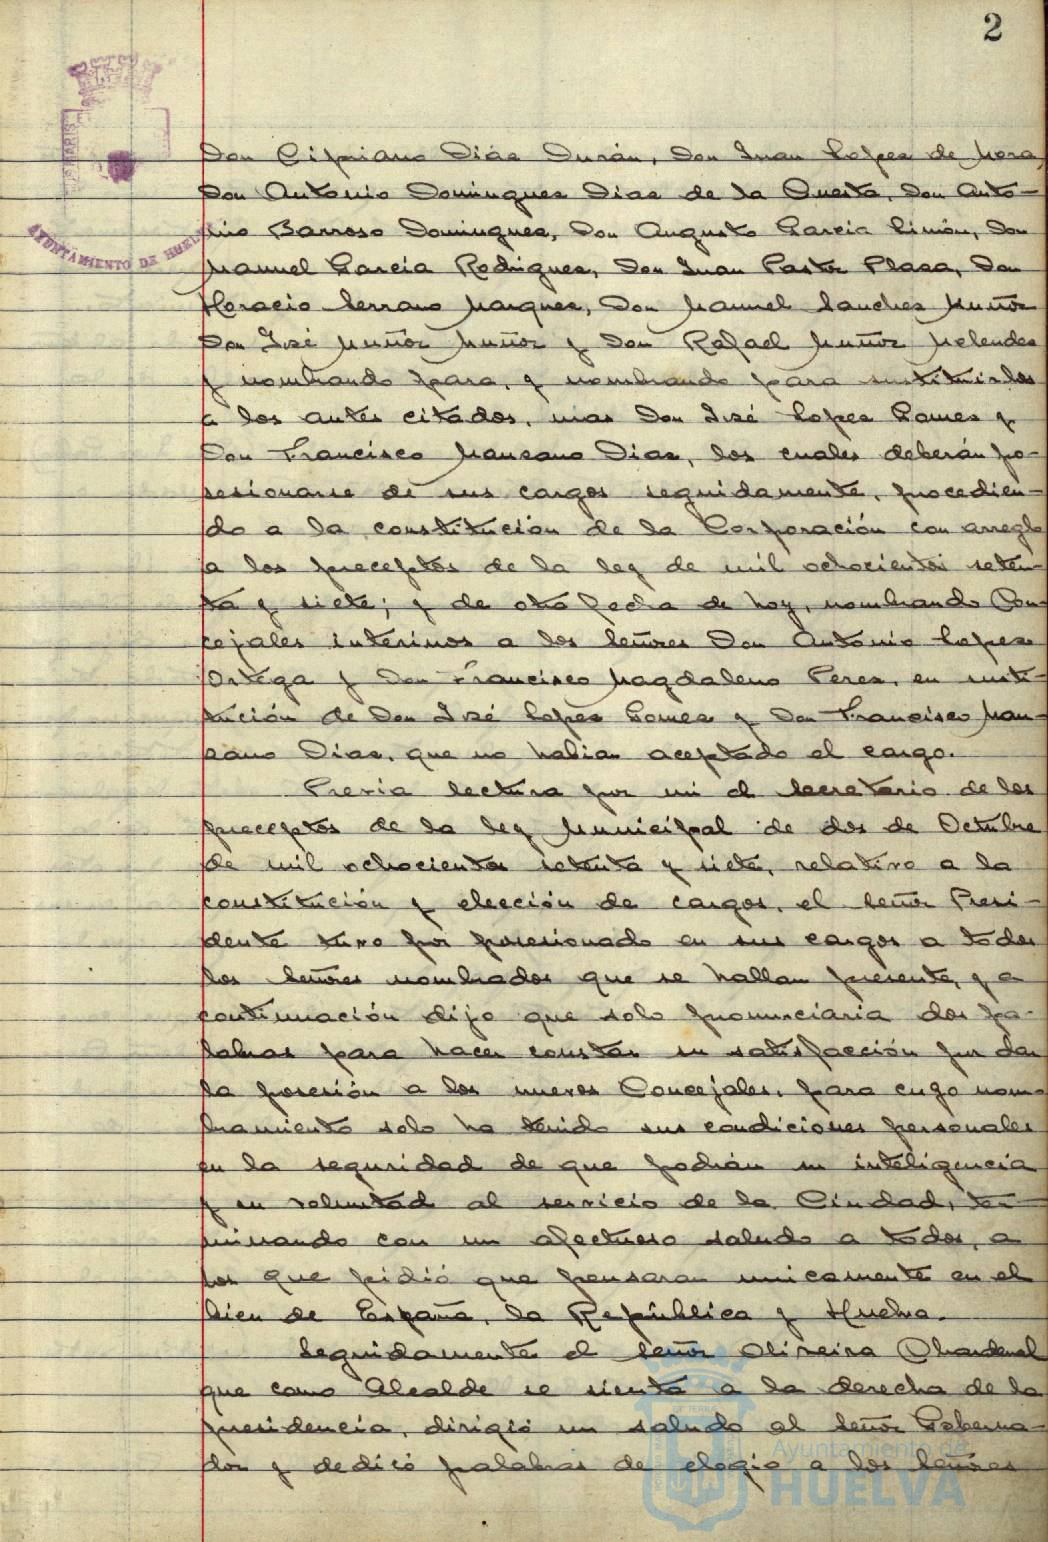 2
AYUNTAMIENTO DE HUELVA
Don Cipriano Dias Durán, Don Juan Lopes de Mora,
Don Antonio Domingues Dias de la Questa, Don Anto-
nio Barroso Domingues, Don Augusto Garcia Limón, Don
Manuel Garcia Rodrigues, Don Juan Pastor Plasa, Don
Horacio Serrano Marques, Don Manuel Sanches Muñoz
Don José Muñoz Muñoz y Don Rafael Muñoz Melendes
y nombrando para, y nombrando para sustituirlos
a los antes citados, mas Don José Lopes Gomes y
Don Francisco Mansano Dias, los cuales deberán po-
sesionarse de sus cargos seguidamente, procedien-
do a la constitución de la Corporación con arreglo
a los preceptos de la ley de mil ochocientos seten-
ta y siete; y de otro fecha de hoy, nombrando Con-
cejales interinos a los señores Don Antonio Lopes
Ortega y Don Francisco Magdaleno Peres, en susti-
tución de Don José Lopes Gomes y Don Francisco Man-
sano Dias, que no habian aceptado el cargo.
Previa lectura por mi el Secretario de los
preceptos de la ley Municipal de dos de Octubre
de mil ochocientos setenta y siete, relativo a la
constitución y elección de cargos, el señor Presi-
dente tuvo por posesionado en sus cargos a todos
los señores nombrados que se hallan presente, y a
continuación dijo que solo pronunciaria dos pa-
labras para hacer constar su satisfacción por dar
la posesión a los nuevos Concejales, para cuyo nom-
bramiento solo ha tenido sus condiciones personales
en la seguridad de que podrán su inteligencia
y su voluntad al servicio de la Ciudad, ter-
minando con un afectuoso saludo a todos, a
los que pidió que pensaran unicamente en el
bien de España, la República y Huelva.
Seguidamente el señor Oliveira Chardenal
que como Alcalde se sienta a la derecha de la
presidencia, dirigió un saludo al señor Goberna-
dor y dedicó palabras de elogio a los señores
Ayuntamiento de
HUELVA